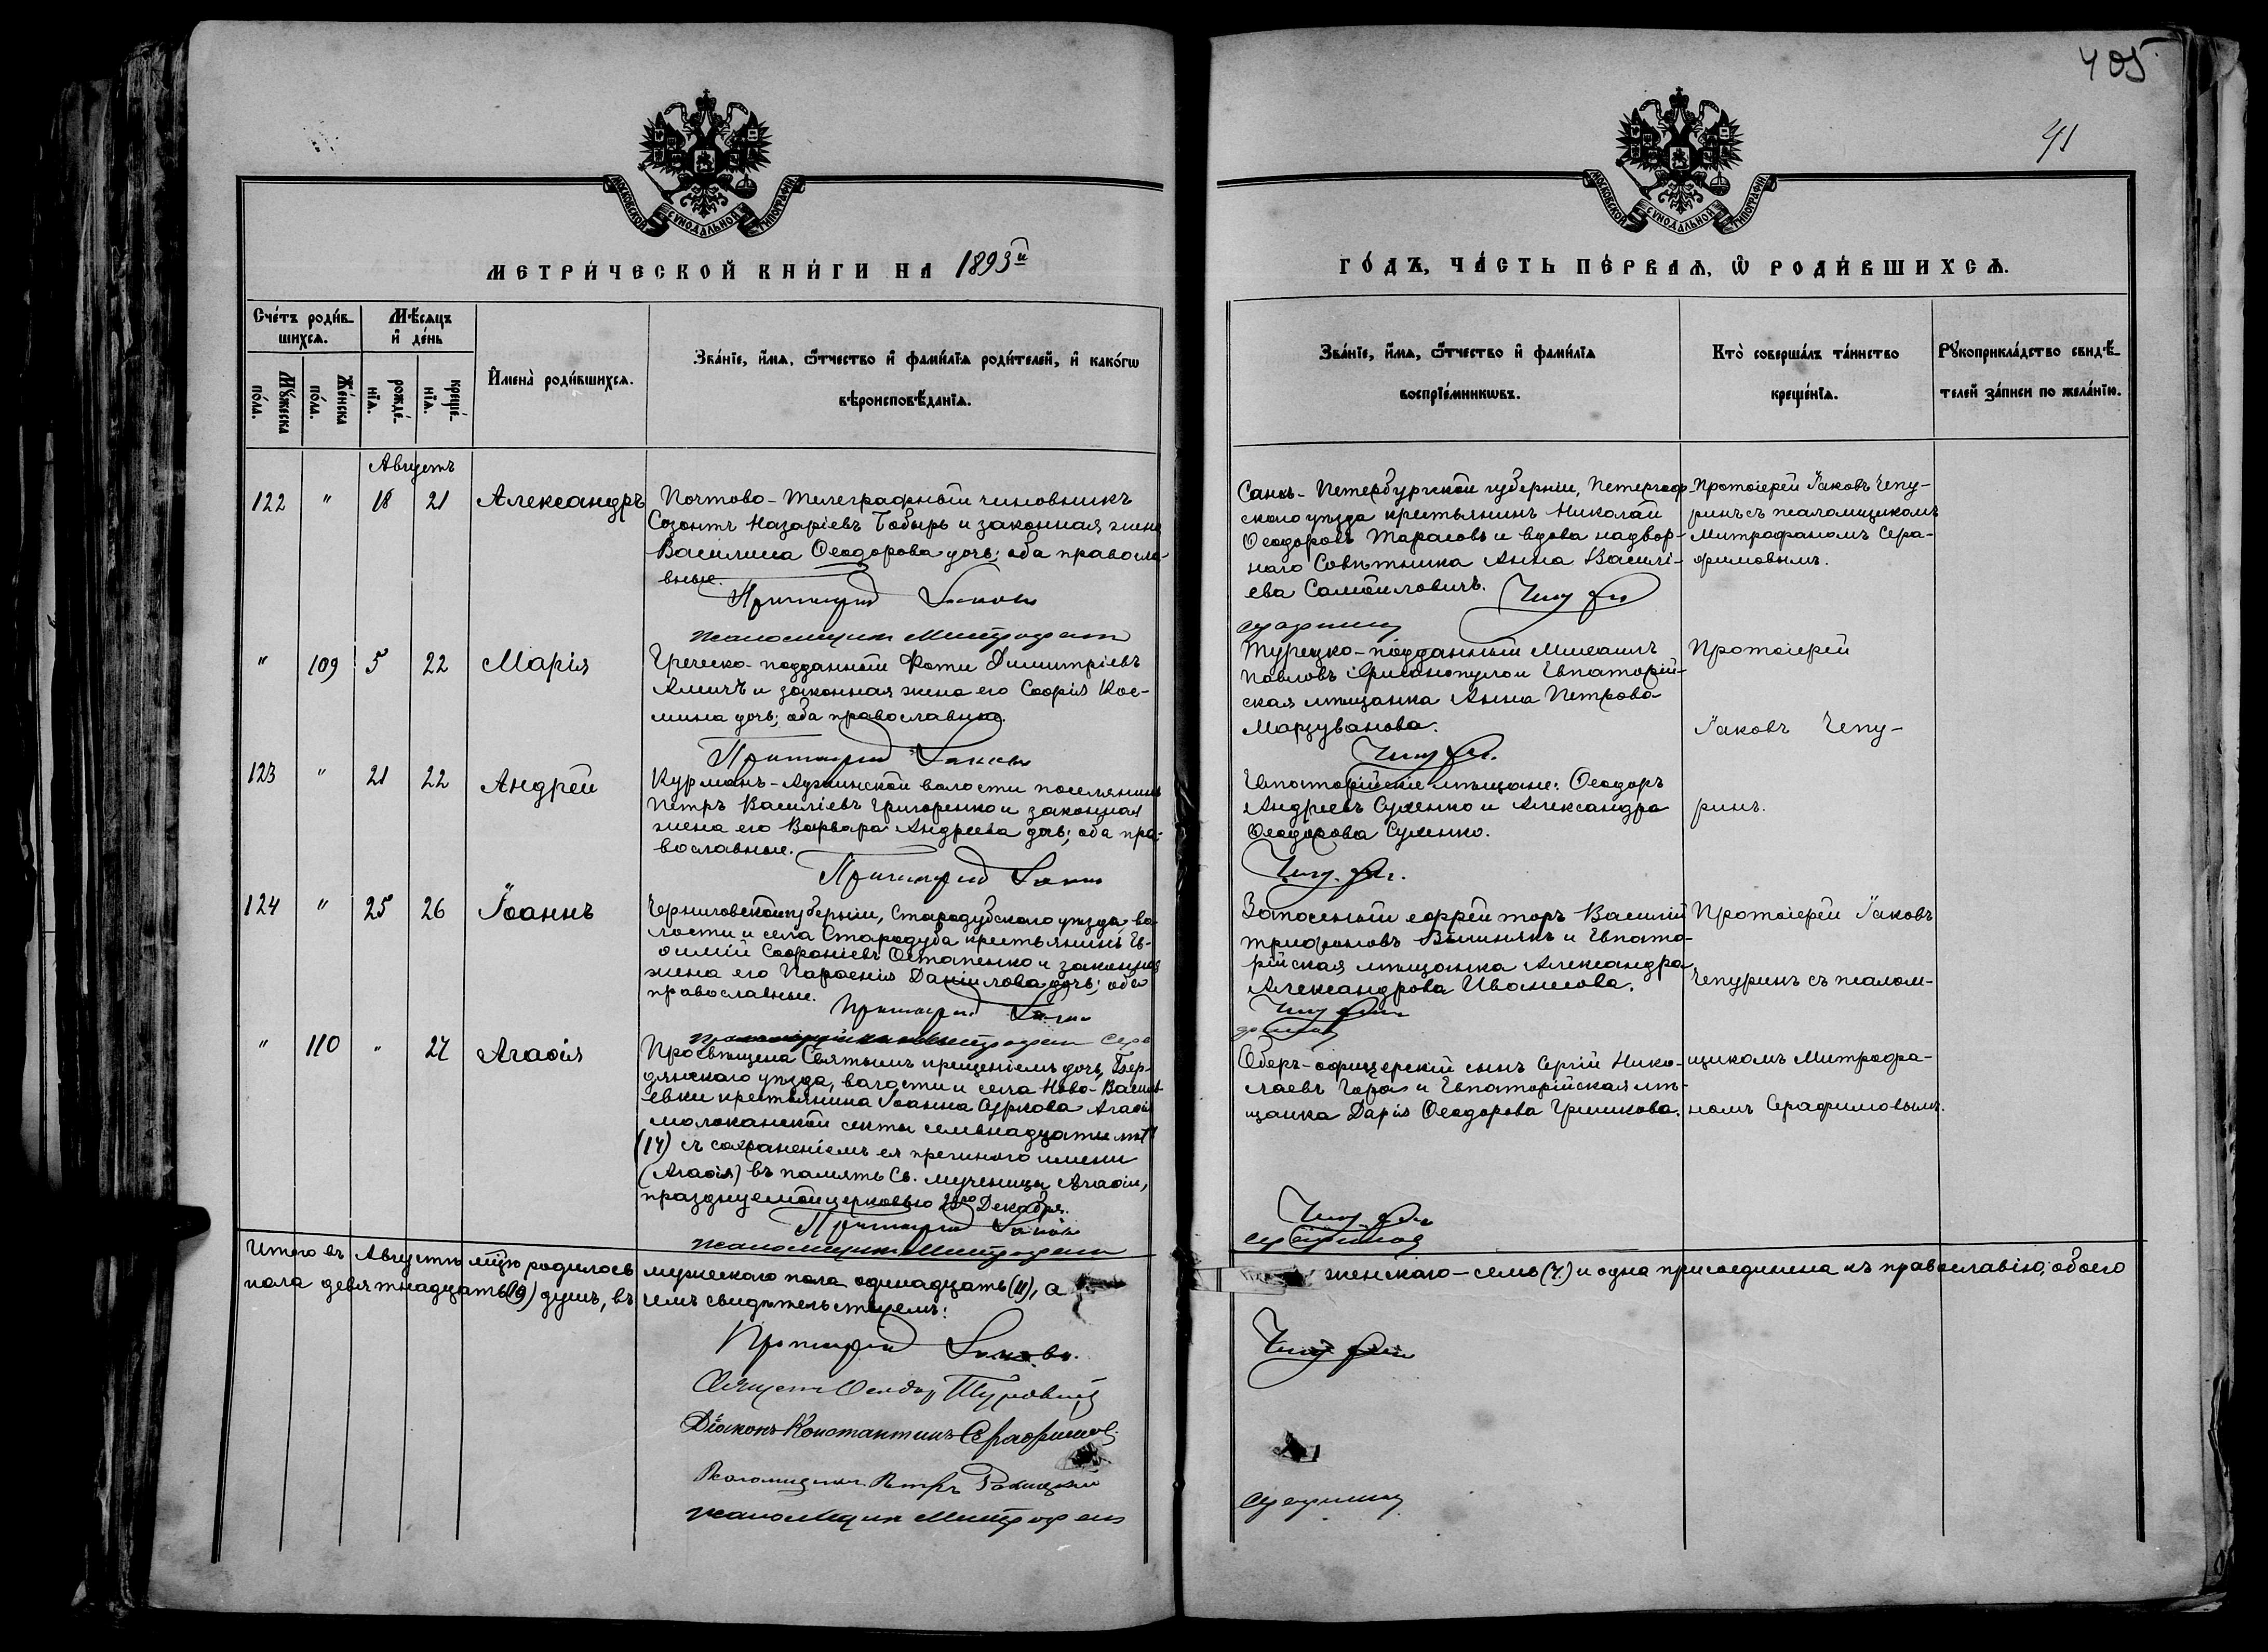 405
41
МОСКОВСКОЙ СѴНОДАЛЬНОЙ ТИПОГРАФІИ
МОСКОВСКОЙ СѴНОДАЛЬНОЙ ТИПОГРАФІИ
МЕТРИ́ЧЕСКОЙ КНИ́ГИ НА 1893й
ГО́ДЪ, ЧА́СТЬ ПЕ́РВАѦ, Ѡ҆ РОДИ́ВШИХСѦ.
Сче́тъ роди́в-
шихсѧ.
Мꙋ́жеска по́ла.
Же́нска по́ла.
Мѣ́сѧцъ
и҆ де́нь
рожде́-нїѧ.
креще́-нїѧ.
И҆мена̀ роди́вшихсѧ.
Зва́нїе, и҆́мѧ, ѻ҆́тчество и҆ фами́лїѧ роди́телей, и҆ како́гѡ
вѣроисповѣ́данїѧ.
Зва́нїе, и҆́мѧ, ѻ҆́тчество и҆ фами́лїѧ
воспрїе́мникѡвъ.
Кто̀ соверша́лъ та́инство
креще́нїѧ.
Рꙋкоприкла́дство свидѣ́-
телей за́писи по жела́нїю.
Августъ
122 " 18 21 Александръ
Почтово-телеграфный чиновникъ
Созонтъ Назаріевъ Бобырь и законная жена
Василиса Ѳеодорова дочь; оба правосла-
вные.
Протоіерей Іаковъ
псаломщикъ Митрофанъ
Санкъ-Петербургской губерніи, Петергоф-
скаго уѣзда крестьянинъ Николай
Ѳеодоровъ Тарасовъ и вдова надвор-
наго Совѣтника Анна Василі-
ева Самойловичъ.
Протоіерей Іаковъ Чепу-
ринъ съ псаломщикомъ
Митрофаномъ Сера-
фимовымъ.
" 109 5 22 Марія
Греческо-подданный Фоти Димитріевъ
и законная жена его Софія Кос-
мина дочь; оба православные.
Протоіерей Іаковъ
Турецко-подданный Михаилъ
Павловъ и Евпаторій-
ская мѣщанка Анна Петрова
Марзуванова.
Протоіерей
Іаковъ Чепу-
123 " 21 22 Андрей
волости поселянинъ
Петръ Василіевъ Григоренко и законная
жена его Варвара Андреева дочь; оба пра-
вославные.
Протоіерей Іаковъ
Евпаторійскіе мѣщане: Ѳеодоръ
Андреевъ Суменко и Александра
Ѳеодорова Суменко.
ринъ.
124 " 25 26 Іоаннъ
Черниговской губерніи, Стародубского уѣзда, во-
лости и села Стародуба крестьянинъ Ев-
ѳимій Софроніевъ Остапенко и законная
жена его Параскевія Даніилова дочь; оба
православные.
Протоіерей Іаковъ
Запасный ефрейторъ Василій
Трифоновъ и Евпато-
рійская мѣщанка Александра
Александрова Иванова.
Протоіерей Іаковъ
Чепуринъ съ псалом-
" 110 " 27 Агаѳія
Просвѣщена Святымъ крещеніемъ дочь, Бер-
дянскаго уѣзда, волости и села Ново-Василь-
евки крестьянина Іоанна Суркова Агаѳія
молоканской секты семьнадцати лѣтъ
(17) съ сохраненіемъ ея прежняго имени
(Агаѳія) въ память Св. мученицы Агаѳіи,
празднуемой церковью 28го Декабря.
Протоіерей Іаковъ
псаломщикъ Митрофанъ
Оберъ-офицерскій сынъ Сергій Нико-
лаевъ Гора и Евпаторійская мѣ-
щанка Дарія Ѳеодорова Гришкова.
щикомъ Митрофа-
номъ Серафимовымъ.
Серафимовъ
Итого въ Августѣ мѣсяцѣ родилось мужескаго пола одинадцать (11), а женскаго – семь (7) и одна присоединена къ православію; обоего
пола девятнадцать (19) душъ, въ чемъ свидѣтельствуемъ:
Протоіерей Іаковъ
Священ. Ѳеодоръ
Діаконъ Константинъ Серафимовъ
Псаломщикъ Петръ
псаломщикъ Митрофанъ
Серафимовъ